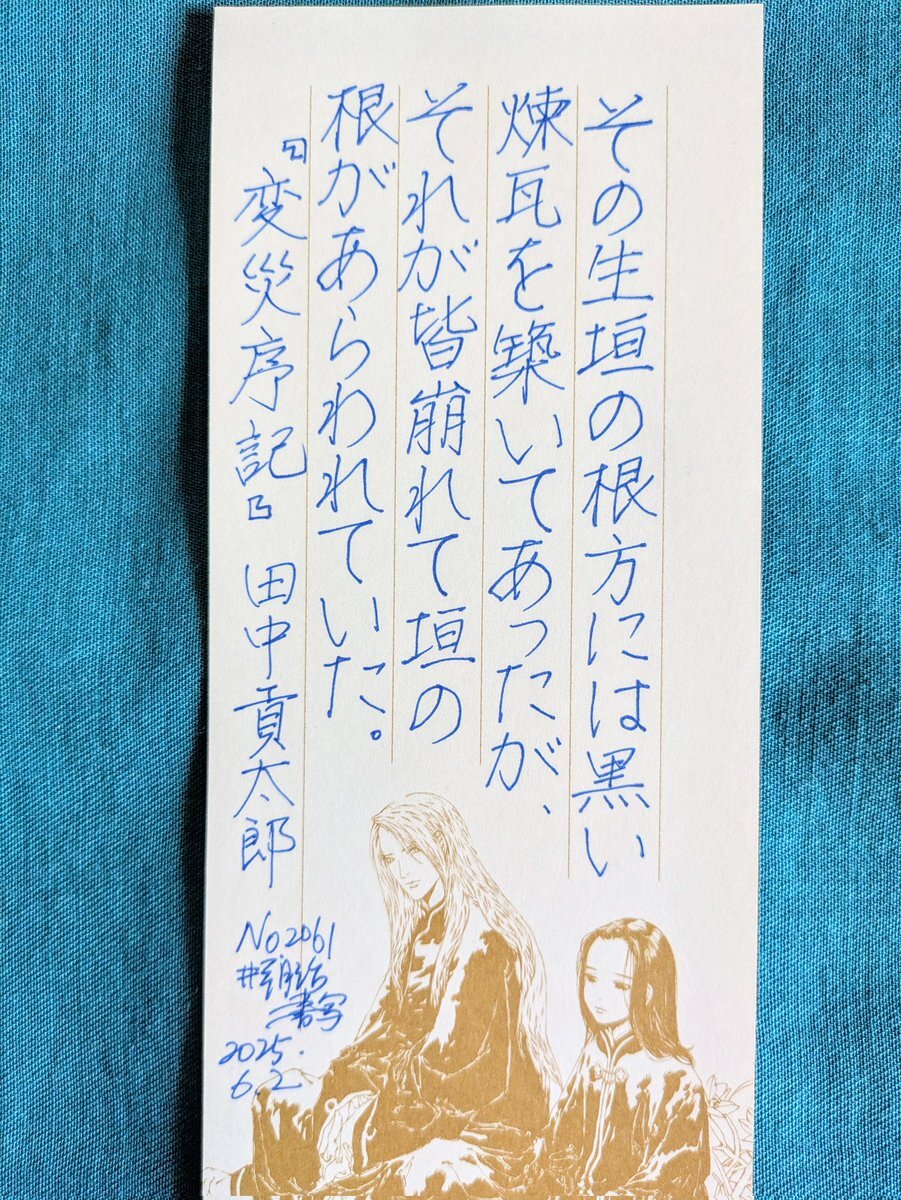 その生垣の根方には黒い
煉瓦を築いてあったが、
それが皆崩れて垣の
根があらわれていた。
『変災序記』 田中貢太郎
No.2061
#朝活書写
2025.
6.2